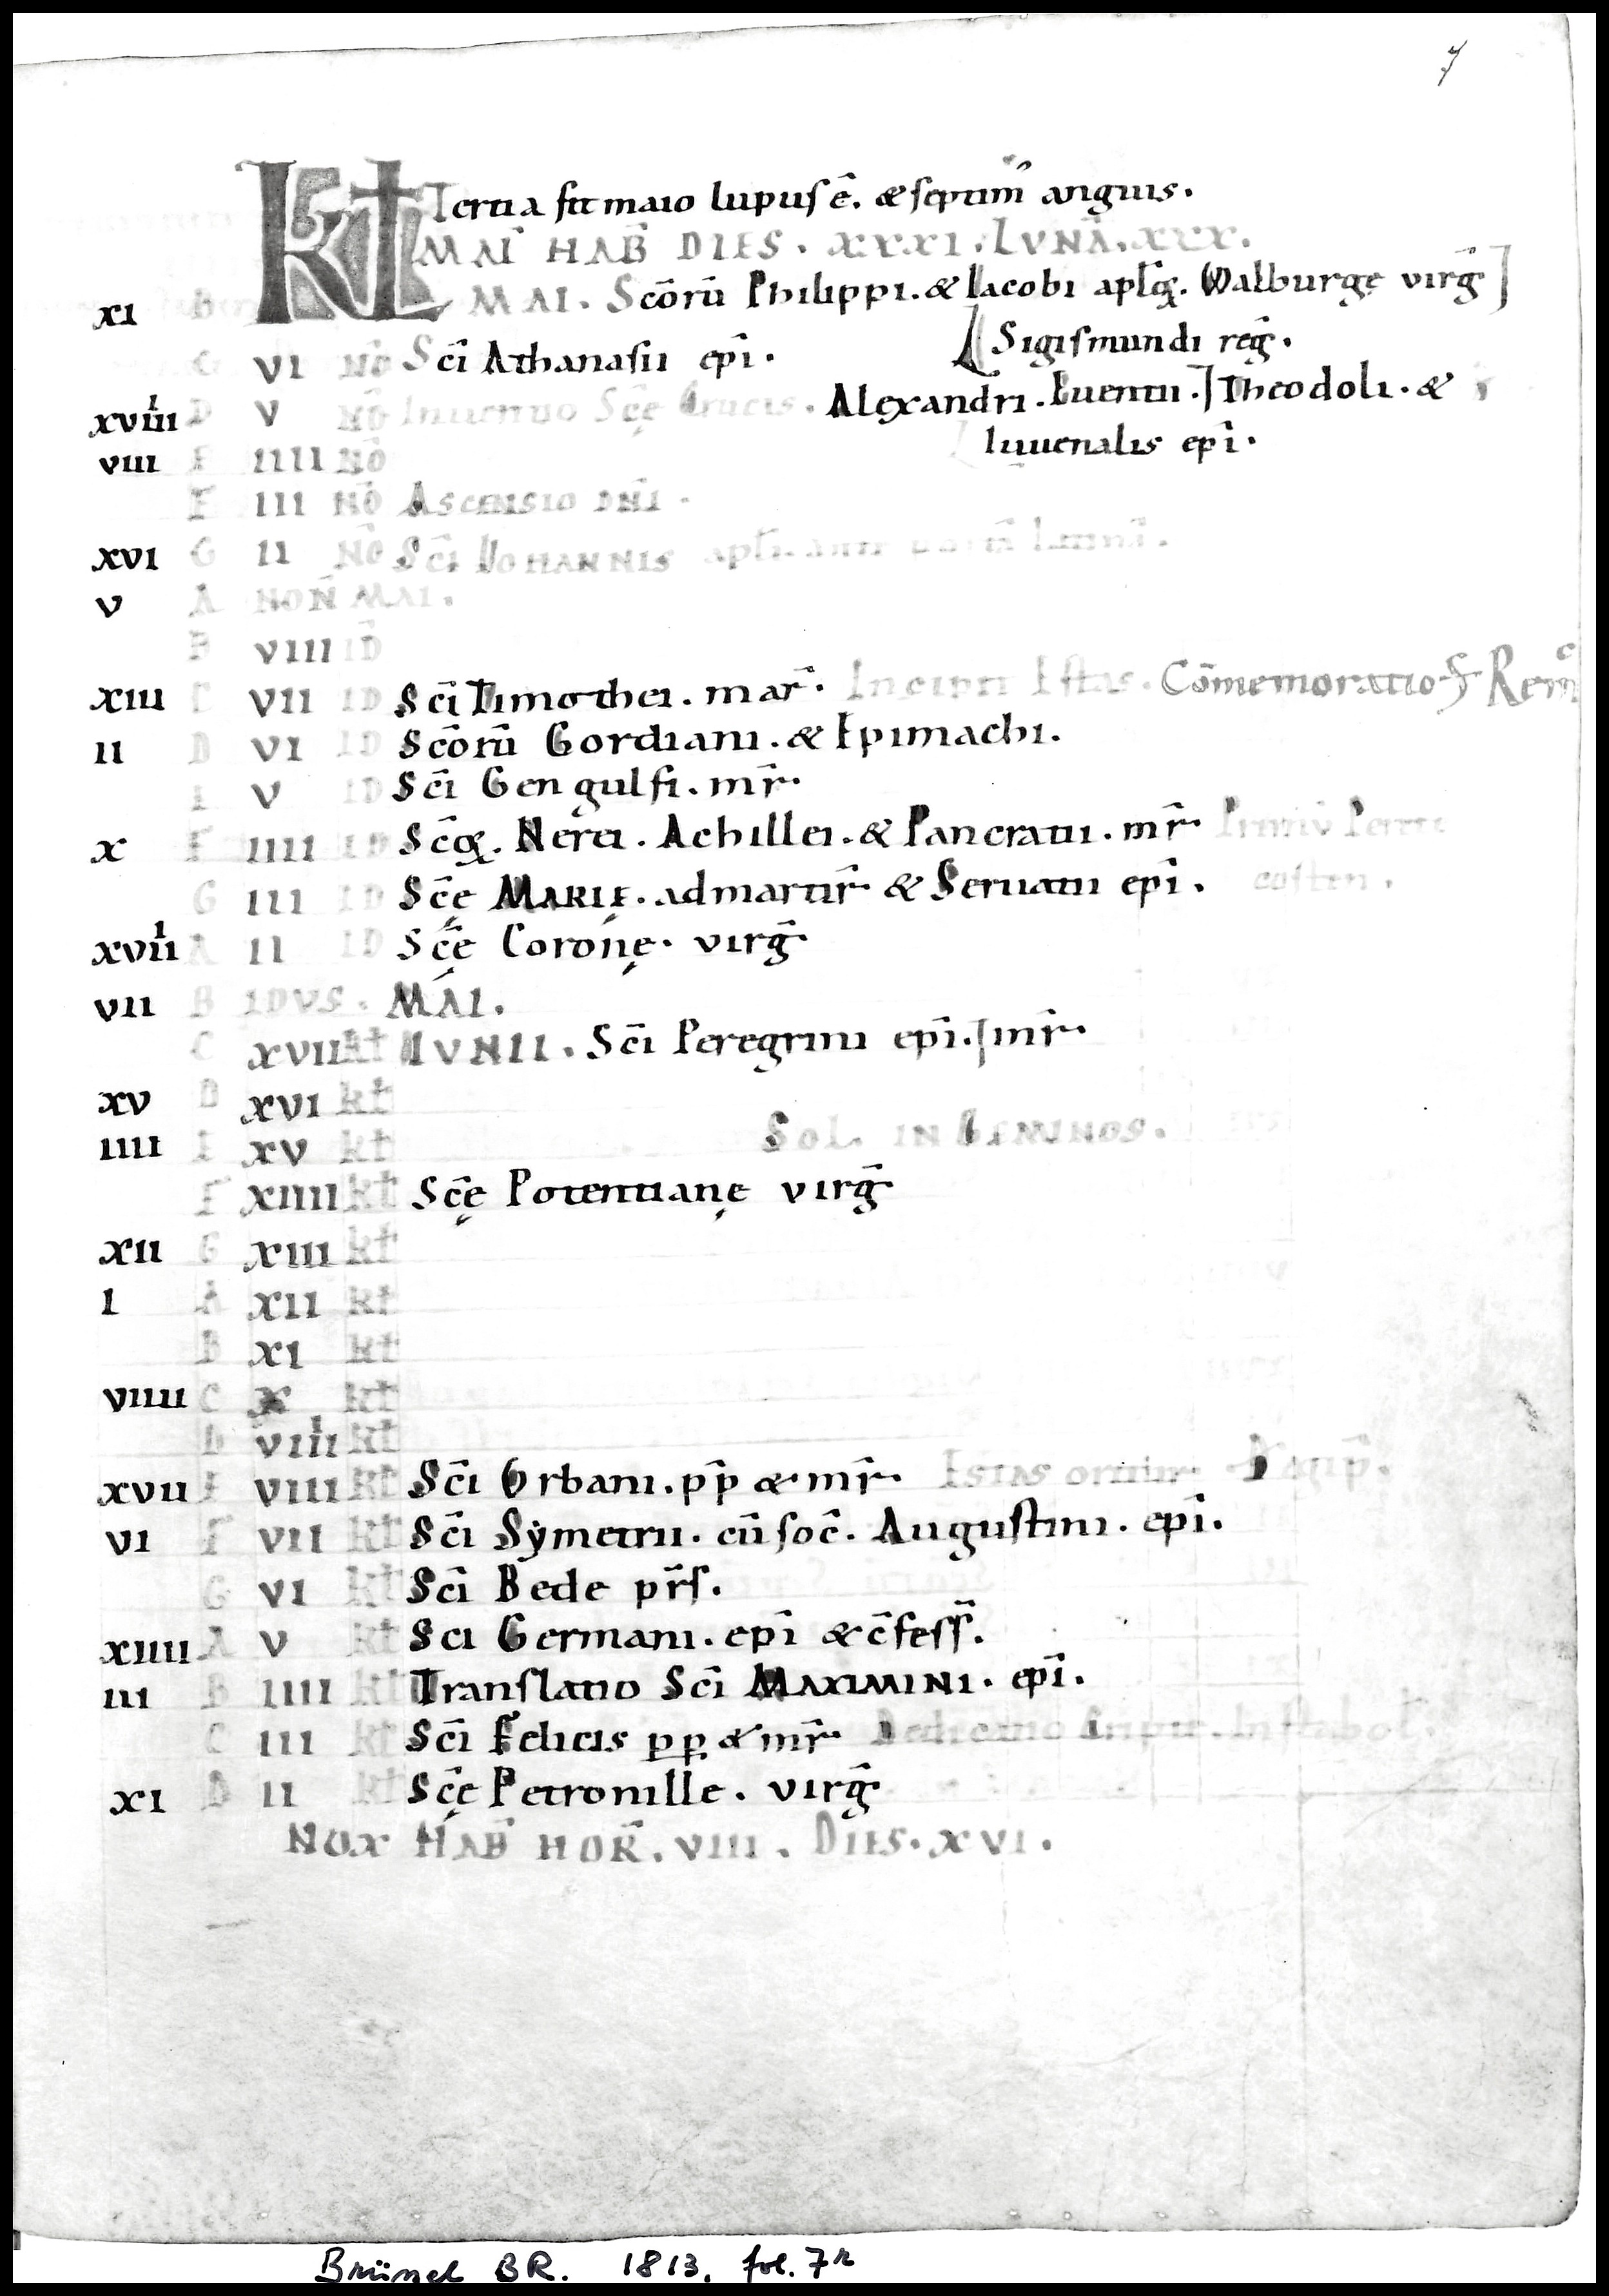 7
KL Tertia fit maio lupus ē. & septim̄ anguis.
MAI HAB̄ DIES. XXXI. LVNĀ. XXX.
XI b MAI. Scōrū Philippi. & Iacobi apl̄oꝝ. Walburgę virḡ
Sigismundi reḡ.
C VI NŌ Sc̄i Athanasii ep̄i.
XVIIII D V NŌ Inuentio Sc̄ę Crucis. Alexandri. Euentii. Theodoli. &
Iuuenalis ep̄i.
VIII E IIII NŌ
F III NŌ Ascensio DN̄I.
XVI G II NŌ Sc̄i IOHANNIS apl̄i ante portā Latinā.
V A NOÑ MAI.
B VIII ID
XIII C VII ID Sc̄i Timothei. mar̄. Incipit Estas. Cōmemoratio
II D VI ID Scōrū Gordiani. & Epimachi.
E V ID Sc̄i Gengulfi. mr̄.
X F IIII ID Sc̄oꝝ. Nerei. Achillei. & Pancratii. mr̄.
G III ID Sc̄ę MARIĘ. ad martir̄ & Seruatii ep̄i.
XVIII A II ID Sc̄ę Coronę. virḡ
VII B IDVS. MAI.
C XVII kł IVNII. Sc̄i Peregrini ep̄i. mr̄.
XV D XVI kł
IIII E XV kł SOL IN GEMINOS.
F XIIII kł Sc̄ę Potentianę virḡ
XII G XIII kł
I A XII kł
B XI kł
VIIII C X kł
D VIIII kł
XVII E VIII kł Sc̄i Vrbani. pp̄ & mr̄. Estas oritur
VI F VII kł Sc̄i Sẏmetrii. cū soc̄. Augustini. ep̄i.
G VI kł Sc̄i Bede pr̄s.
XIIII A V kł Sci Germani. ep̄i & c̄fess̄.
III B IIII kł Translatio Sc̄i MAXIMINI. ep̄i.
C III kł Sc̄i Felicis pp & mr̄ Dedicatio
XI D II kł Sc̄ę Petronille. virḡ
NOX HAB̄ HOR̄. VIII. DIES. XVI.
Brüssel BR. 1813. fol. 7r